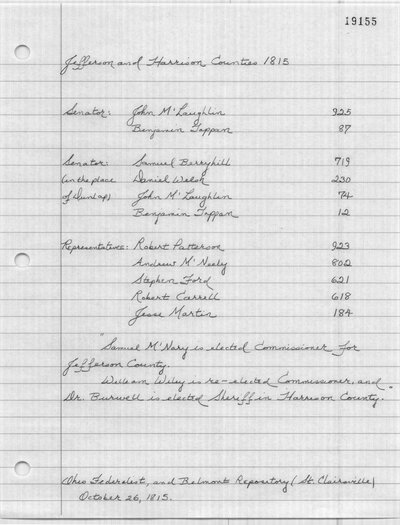 19155
Jefferson and Harrison Counties 1815
Senator: John M'Laughlin 925
Benjamin Tappan 87
Senator: Samuel Berryhill 719
(in the place Daniel Welsh 230
of Dunlap) John M'Laughlin 74
Benjamin Tappan 12
Representatives: Robert Patterson 923
Andrew M'Neely 802
Stephen Ford 621
Robert Carrell 618
Jesse Martin 184
"Samuel M'Nary is elected Commissioner for
Jefferson County.
William Wiley is re-elected Commissioner, and
Dr. Burwell is elected Sheriff in Harrison County."
Ohio Federalist, and Belmont Repository (St. Clairsville)
October 26, 1815.